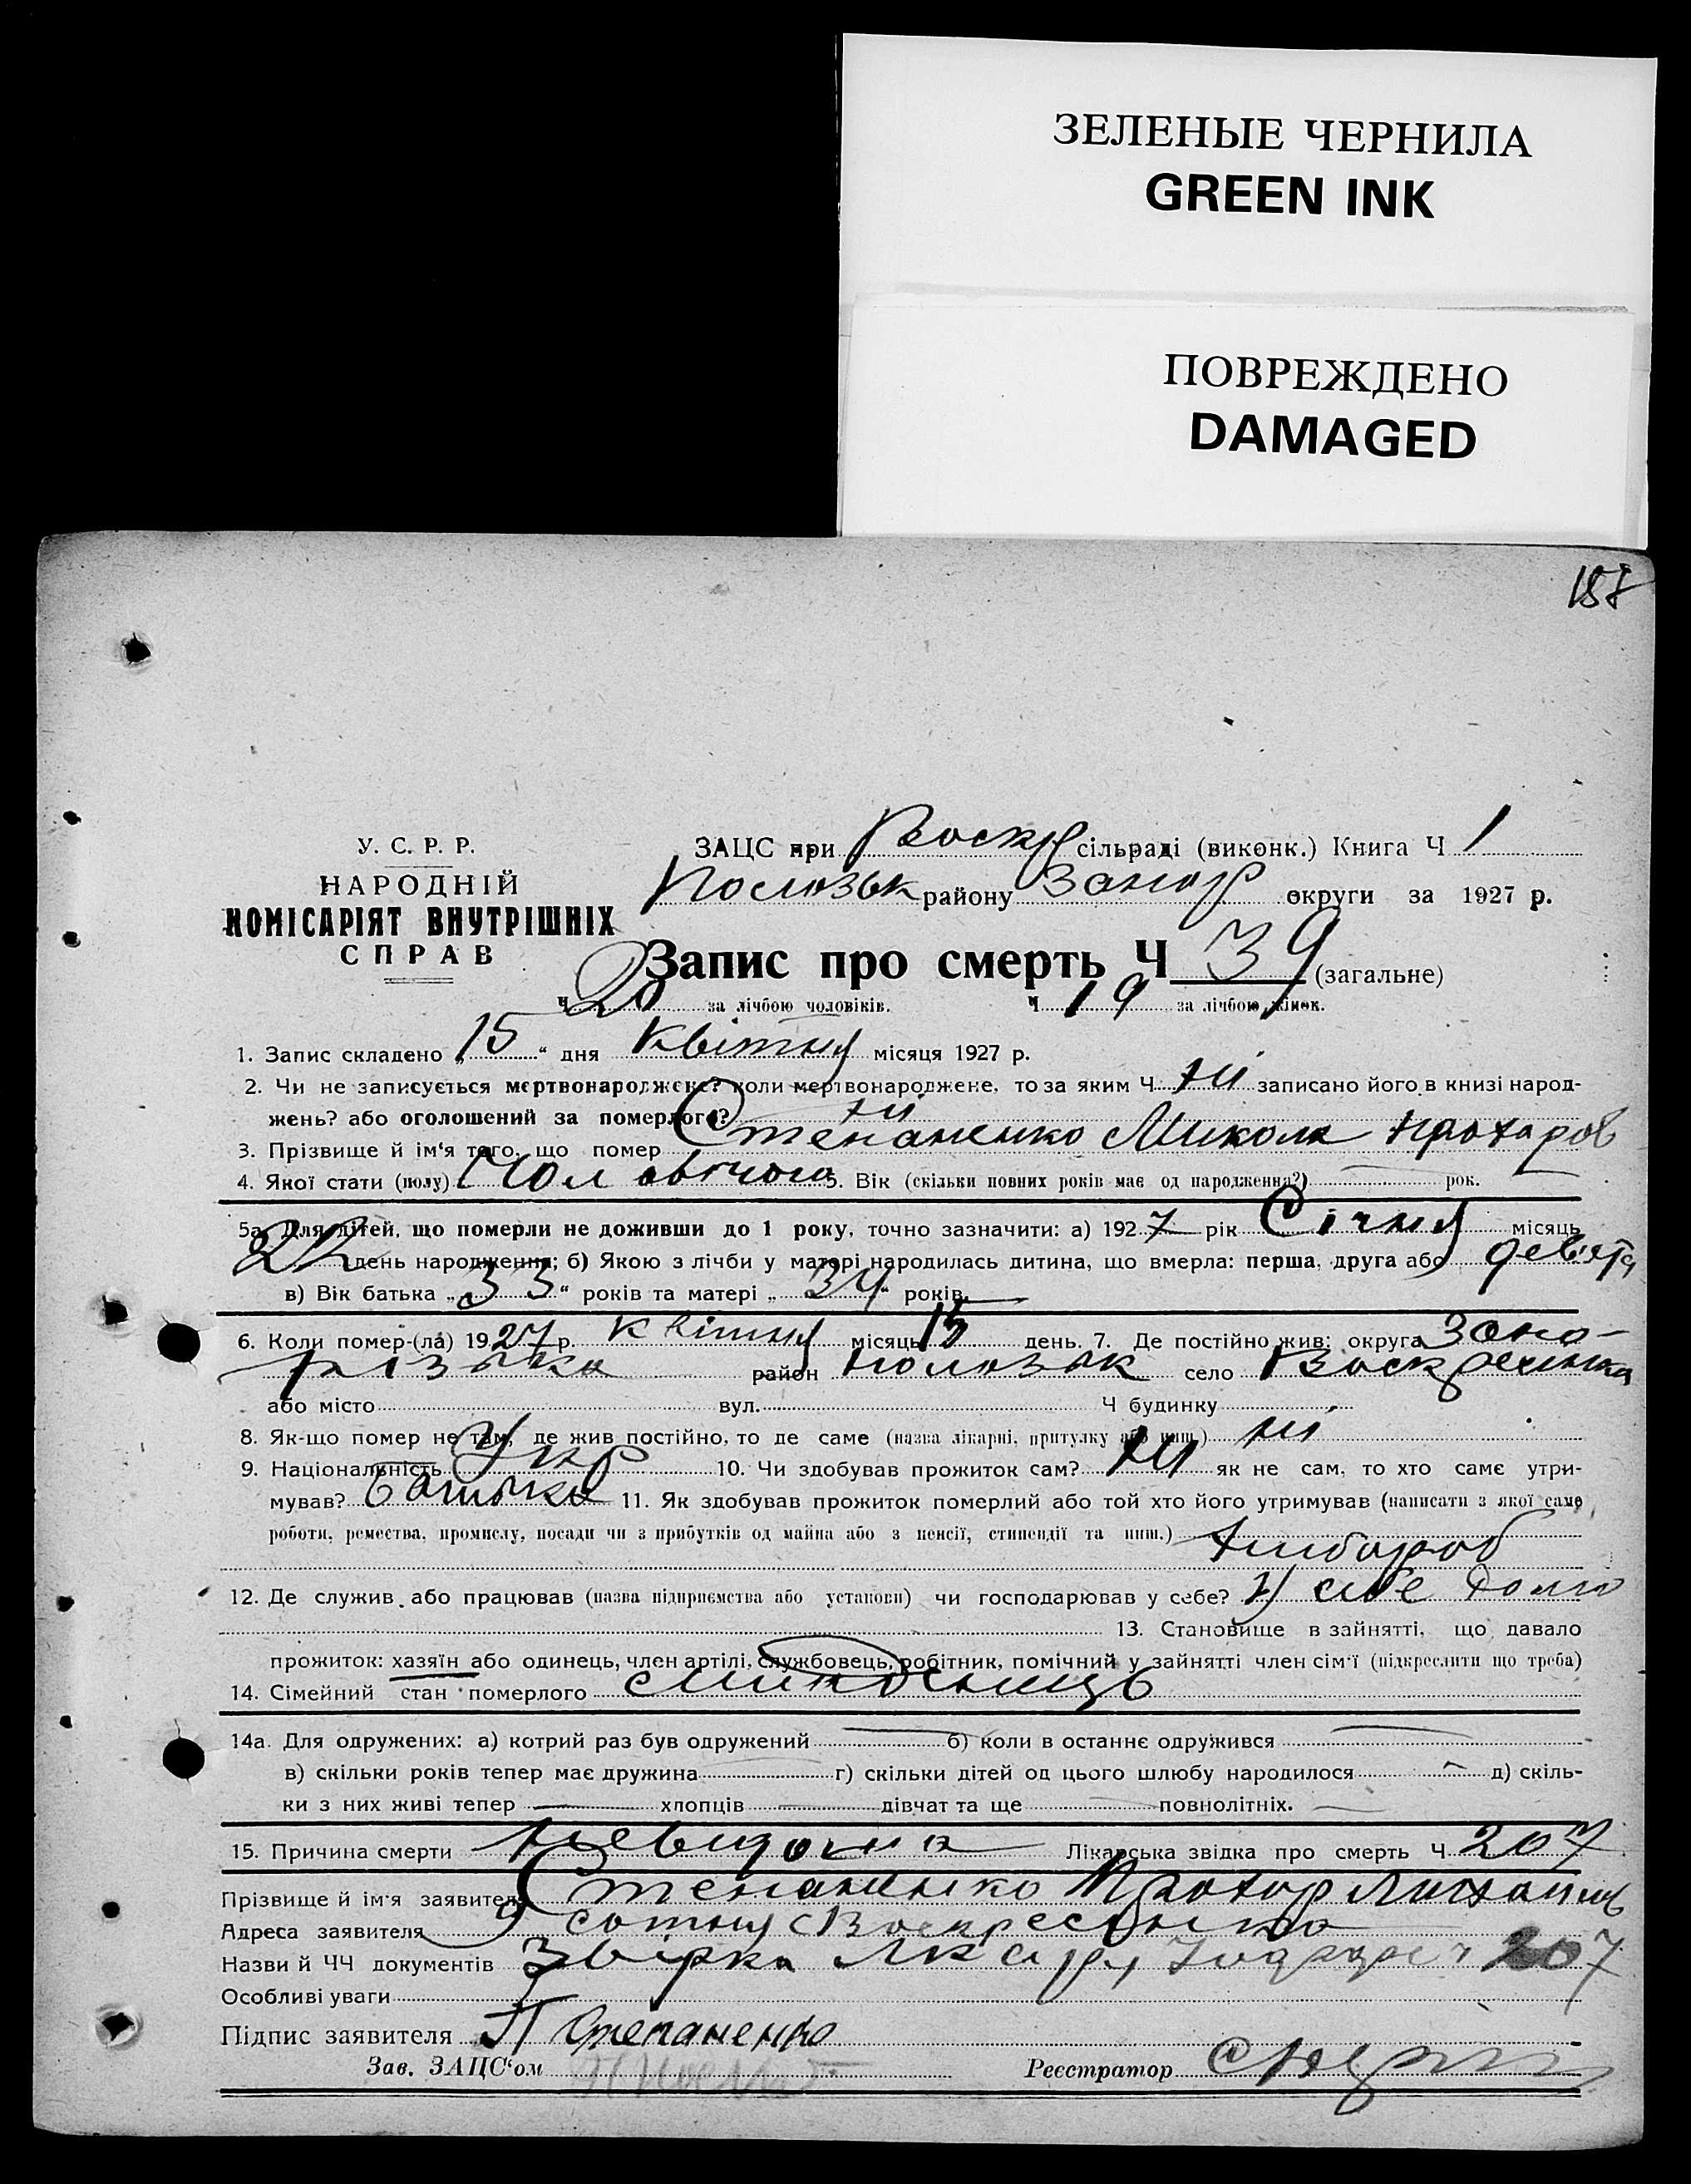 ЗЕЛЕНЫЕ ЧЕРНИЛА
GREEN INK
ПОВРЕЖДЕНО
DAMAGED
У. С. Р. Р.
НАРОДНІЙ
КОМІСАРІЯТ ВНУТРІШНІХ
СПРАВ
ЗАЦС при Воскр сільраді (виконк.) Книга Ч 1
Пологівськ району Запор округи за 1927 р.
Запис про смерть Ч 39 (загальне)
Ч 20 за лічбою чоловіків. Ч 19 за лічбою жінок.
1. Запис складено „15“ дня Квітня місяця 1927 р.
2. Чи не записується мертвонароджене? коли мертвонароджене, то за яким Ч ні записано його в книзі народ-
жень? або оголошений за померлого? ні
3. Прізвище й ім‘я того, що помер Степаненко Микола Прохоров
4. Якої стати (полу) Чоловічого 5. Вік (скільки повних років має од народження?) рок.
5а. Для дітей, що померли не доживши до 1 року, точно зазначити: а) 1927 рік Січня місяць
22 день народження; б) Якою з лічби у матері народилась дитина, що вмерла: перша, друга або дев'ята
в) Вік батька „33“ років та матері „34“ років.
6. Коли помер-(ла) 1927 р. Квітня місяць 15 день. 7. Де постійно жив: округа Запо-
різька район Пологівськ село Воскресенка
або місто вул. Ч будинку
8. Як-що помер не там, де жив постійно, то де саме (назва лікарні, притулку або инш.) ні
9. Національність Укр 10. Чи здобував прожиток сам? ні як не сам, то хто саме утри-
мував? Батько 11. Як здобував прожиток померлий або той хто його утримував (написати з якої саме
роботи, ремества, промислу, посади чи з прибутків од майна або з пенсії, стипендії та инш.) Хлібороб
12. Де служив або працював (назва підприємства або установи) чи господарював у себе? У себе дома
13. Становище в зайнятті, що давало
прожиток: хазяїн або одинець, член артілі, службовець, робітник, помічний у зайнятті член сім‘ї (підкреслити що треба)
14. Сімейний стан померлого
14а. Для одружених: а) котрий раз був одружений б) коли в останнє одружився
в) скільки років тепер має дружина г) скільки дітей од цього шлюбу народилося д) скіль-
ки з них живі тепер хлопців дівчат та ще повнолітніх.
15. Причина смерти Невидома Лікарська звідка про смерть Ч 207
Прізвище й ім‘я заявителя Степаненко Прохор
Адреса заявителя 9 сотня с Воскресенка
Назви й ЧЧ документів 207
Особливі уваги
Підпис заявителя П Степаненко
Зав. ЗАЦС‘ом
Реєстратор